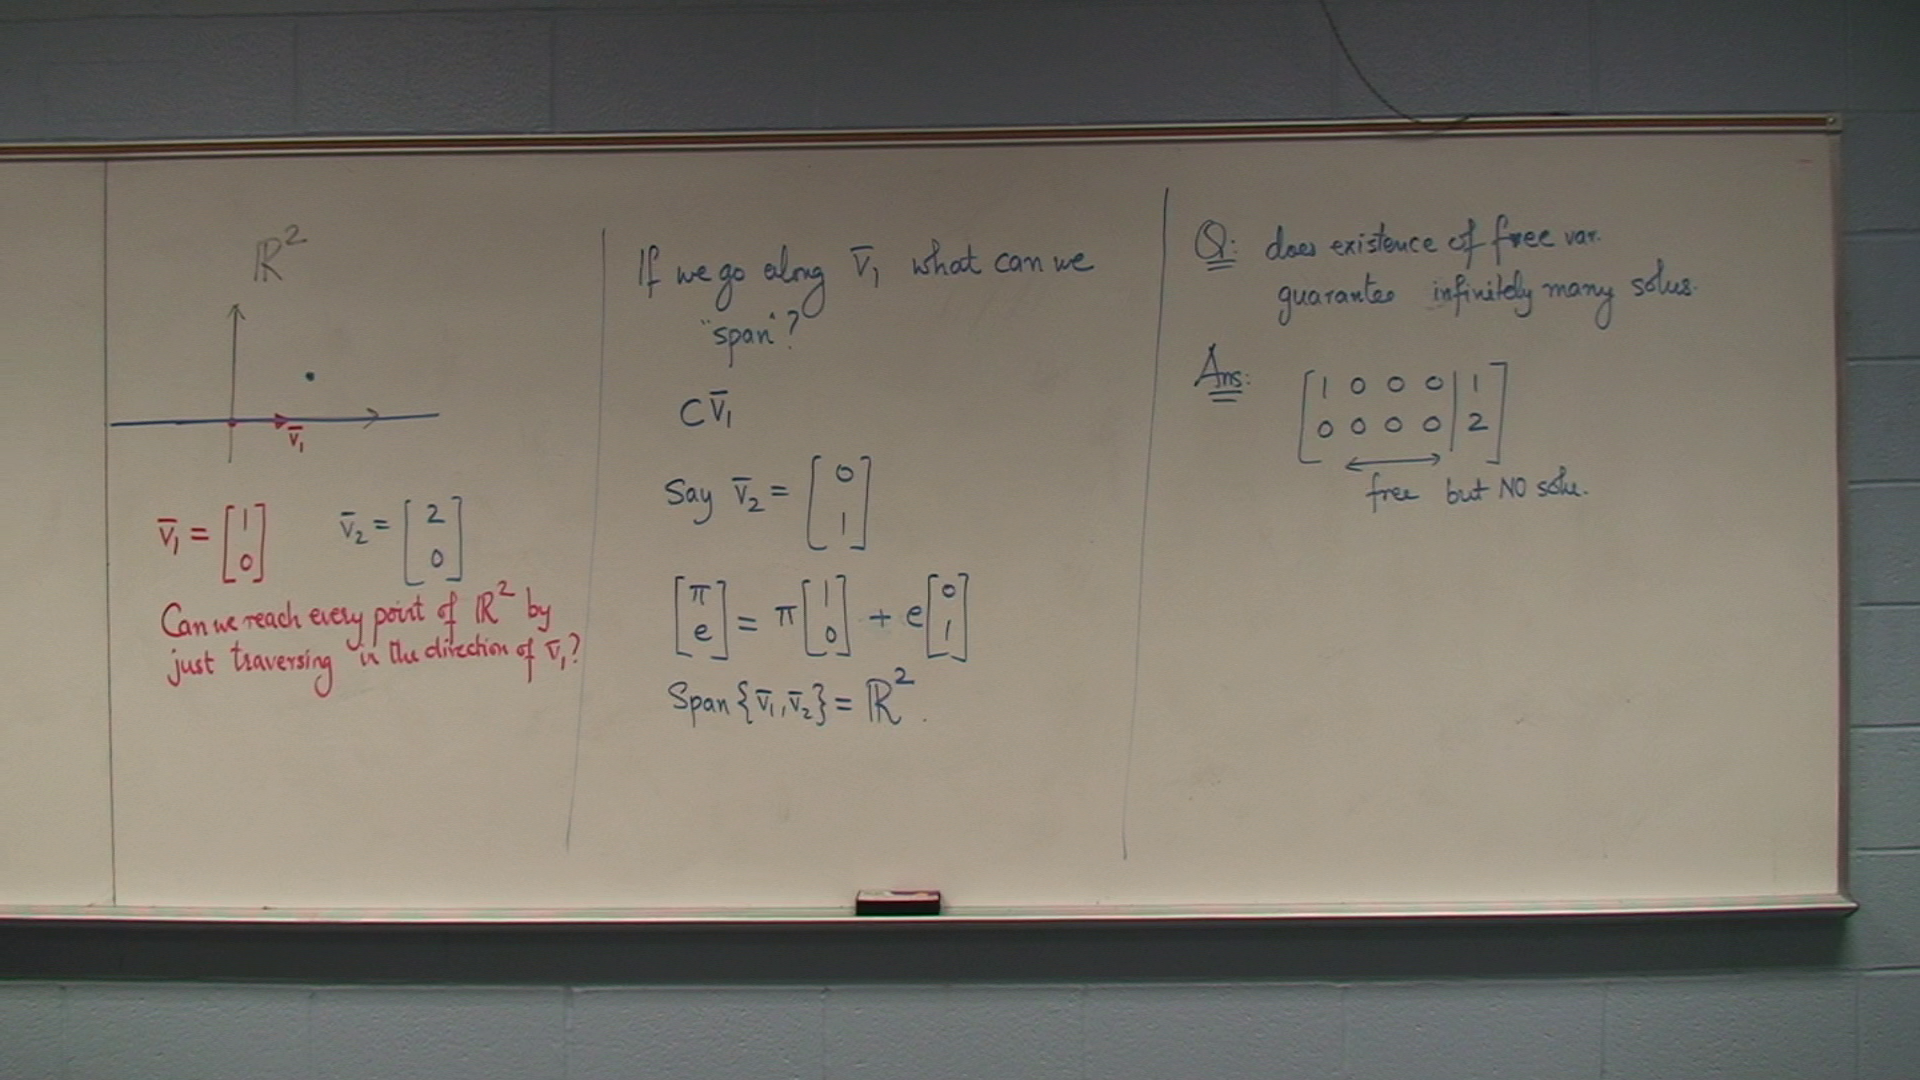 ℝ²
v̄₁
v̄₁ = [1 0] v̄₂ = [2 0]
Can we reach every point of ℝ² by
just traversing in the direction of v̄₁?
If we go along v̄₁ what can we
"span"?
C v̄₁
Say v̄₂ = [0 1]
[π e] = π [1 0] + e [0 1]
Span {v̄₁, v̄₂} = ℝ².
Q: does existence of free var.
guarantee infinitely many solus.
Ans: [1 0 0 0 | 1
0 0 0 0 | 2]
free but NO solu.